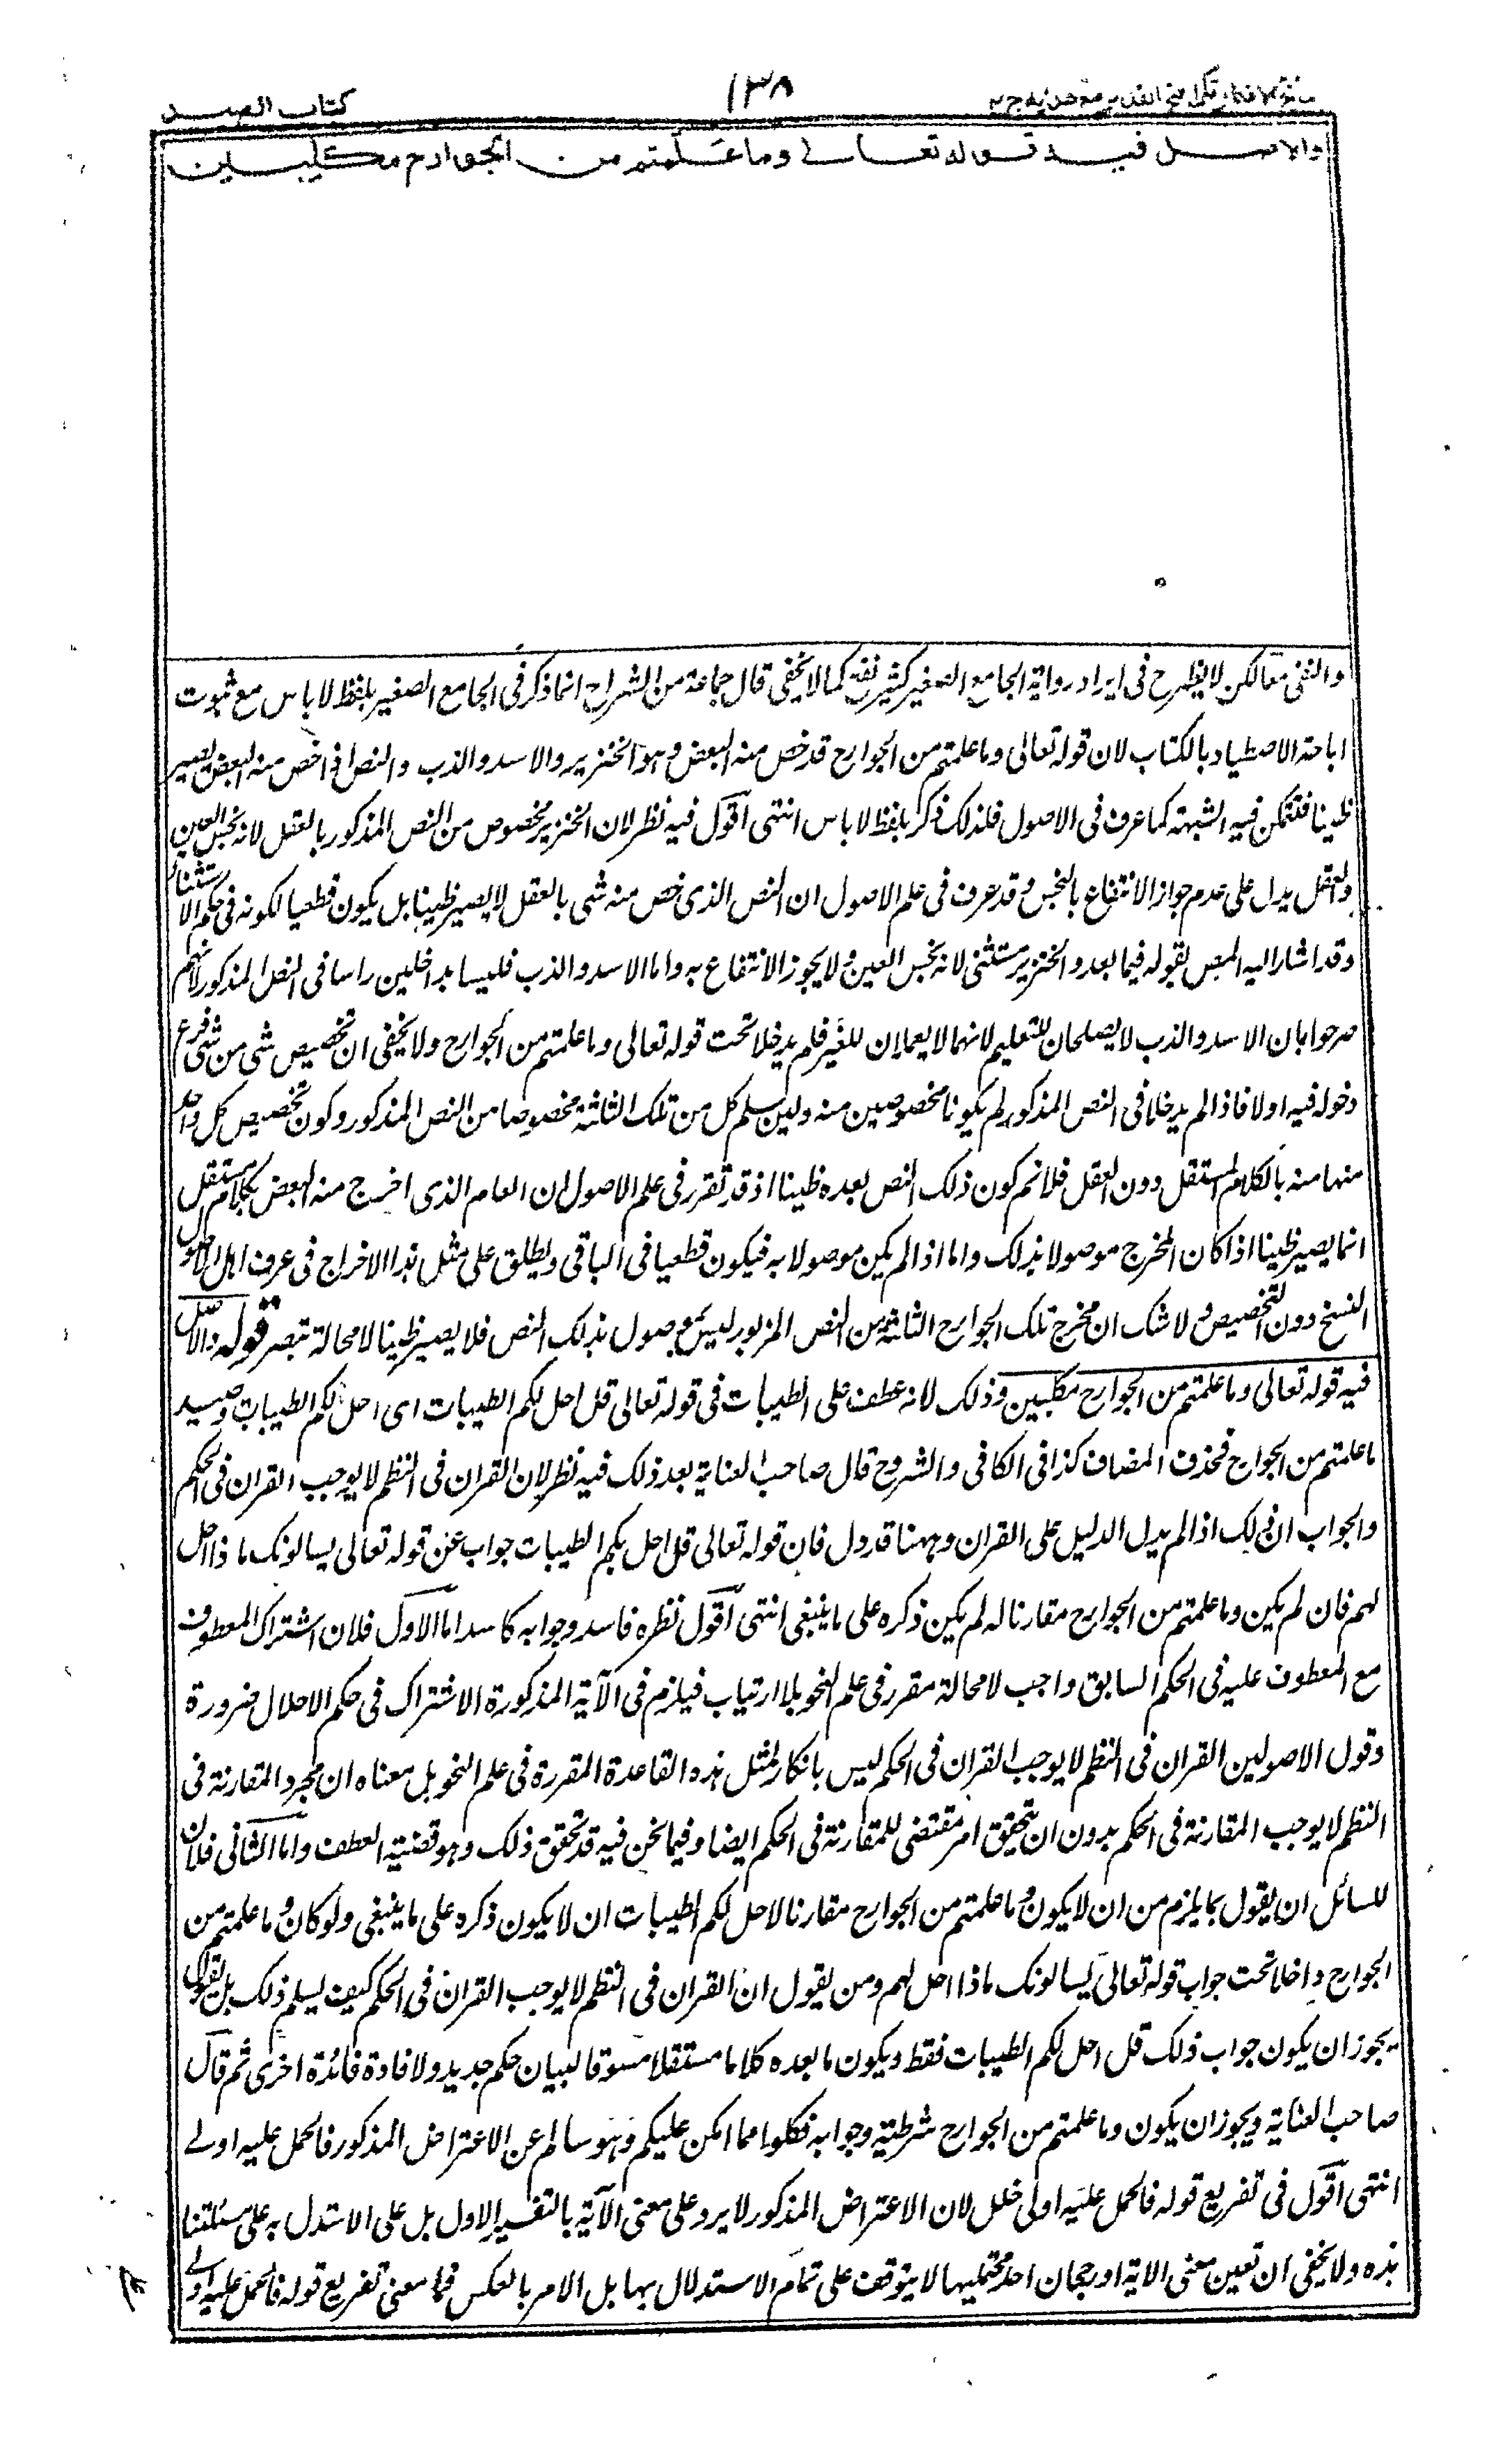 نتائج الافكار تكملة فتح القدير مع هدايه ج ٤
١٣٨
كتاب الصيد
والاصل فيه قوله تعالى وما علمتم من الجوارح مكلبين
والنفى معا لكن لا يظهر ح فى ايراد رواية الجامع الصغير كثير نفع كما لا يخفى قال جماعة من الشراح انما ذكر فى الجامع الصغير بلفظ لا باس مع ثبوت
اباحة الاصطياد بالكتاب لان قوله تعالى وما علمتم من الجوارح قد خص منه البعض وهو الخنزير والاسد والدب والنص اذا خص منه البعض يصير
ظنيا فتمكن فيه الشبهة كما عرف فى الاصول فلذلك ذكر بلفظ لا باس انتهى اقول فيه نظر لان الخنزير مخصوص من النص المذكور بالعقل لانه نجس العين
والعقل يدل على عدم جواز الانتفاع بالنجس وقد عرف فى علم الاصول ان النص الذى خص منه شى بالعقل لا يصير ظنيا بل يكون قطعيا لكونه فى حكم الاستثناء
وقد اشار اليه المص بقوله فيما بعد والخنزير مستثنى لانه نجس العين ولا يجوز الانتفاع به واما الاسد والدب فليسا بداخلين راسا فى النص المذكور لانهم
صرحوا بان الاسد والدب لا يصلحان للتعليم لانهما لا يعملان للغير فلم يدخلا تحت قوله تعالى وما علمتم من الجوارح ولا يخفى ان تخصيص شى من شى فرع
دخوله فيه اولا فاذا لم يدخلا فى النص المذكور لم يكونا مخصوصين منه ولئن سلم كل من تلك الثلثة مخصوصا من النص المذكور وكون تخصيص كل واحد
منها منه بالكلام المستقل دون العقل فلا نم كون ذلك النص بعده ظنيا اذ قد تقرر فى علم الاصول ان العام الذى اخرج منه البعض بكلام مستقل
انما يصير ظنيا اذا كان المخرج موصولا بذلك واما اذا لم يكن موصولا به فيكون قطعيا فى الباقى ويطلق على مثل هذا الاخراج فى عرف اهل الاصول
النسخ دون التخصيص ولا شك ان مخرج تلك الجوارح الثلثة من النص المزبور ليس بموصول بذلك النص فلا يصير ظنيا لا محالة تبصر قوله والاصل
فيه قوله تعالى وما علمتم من الجوارح مكلبين وذلك لانه عطف على الطيبات فى قوله تعالى قل احل لكم الطيبات اى احل لكم الطيبات وصيد
ما علمتم من الجوارح فحذف المضاف كذا فى الكافى والشروح قال صاحب العناية بعد ذلك فيه نظر لان القران فى النظم لا يوجب القران فى الحكم
والجواب ان ذلك اذا لم يدل الدليل على القران وههنا قد دل فان قوله تعالى قل احل لكم الطيبات جواب عن قوله تعالى يسالونك ما ذا احل
لهم فان لم يكن وما علمتم من الجوارح مقارنا له لم يكن ذكره على ما ينبغى انتهى اقول نظره فاسد وجوابه كاسد اما الاول فلان اشتراك المعطوف
مع المعطوف عليه فى الحكم السابق واجب لا محالة مقرر فى علم النحو بلا ارتياب فيلزم فى الآية المذكورة الاشتراك فى حكم الاحلال ضرورة
وقول الاصولين القران فى النظم لا يوجب القران فى الحكم ليس بانكار لمثل هذه القاعدة المقررة فى علم النحو بل معناه ان مجرد المقارنة فى
النظم لا يوجب المقارنة فى الحكم بدون ان يتحقق امر مقتضى للمقارنة فى الحكم ايضا وفيما نحن فيه قد تحقق ذلك وهو قضية العطف واما الثانى فلان
للسائل ان يقول بما يلزم من ان لا يكون وما علمتم من الجوارح مقارنا لاحل لكم الطيبات ان لا يكون ذكره على ما ينبغى ولو كان وما علمتم من
الجوارح داخلا تحت جواب قوله تعالى يسالونك ماذا احل لهم ومن يقول ان القران فى النظم لا يوجب القران فى الحكم كيف يسلم ذلك بل يقول
يجوز ان يكون جواب ذلك قل احل لكم الطيبات فقط ويكون ما بعده كلاما مستقلا مسوقا لبيان حكم جديد ولافادة فائدة اخرى ثم قال
صاحب العناية ويجوز ان يكون وما علمتم من الجوارح شرطية وجوابه فكلوا مما امكن عليكم وهو سالم عن الاعتراض المذكور فالحمل عليه اولے
انتهى اقول فى تفريع قوله فالحمل عليه اولى خلل لان الاعتراض المذكور لا يرد على معنى الآية بالتفسير الاول بل على الاستدل به على مسئلتنا
هذه ولا يخفى ان تعين معنى الاية او رجحان احد محتمليها لا يتوقف على تمام الاستدلال بها بل الامر بالعكس فما معنى تفريع قوله فالحمل عليه اولے